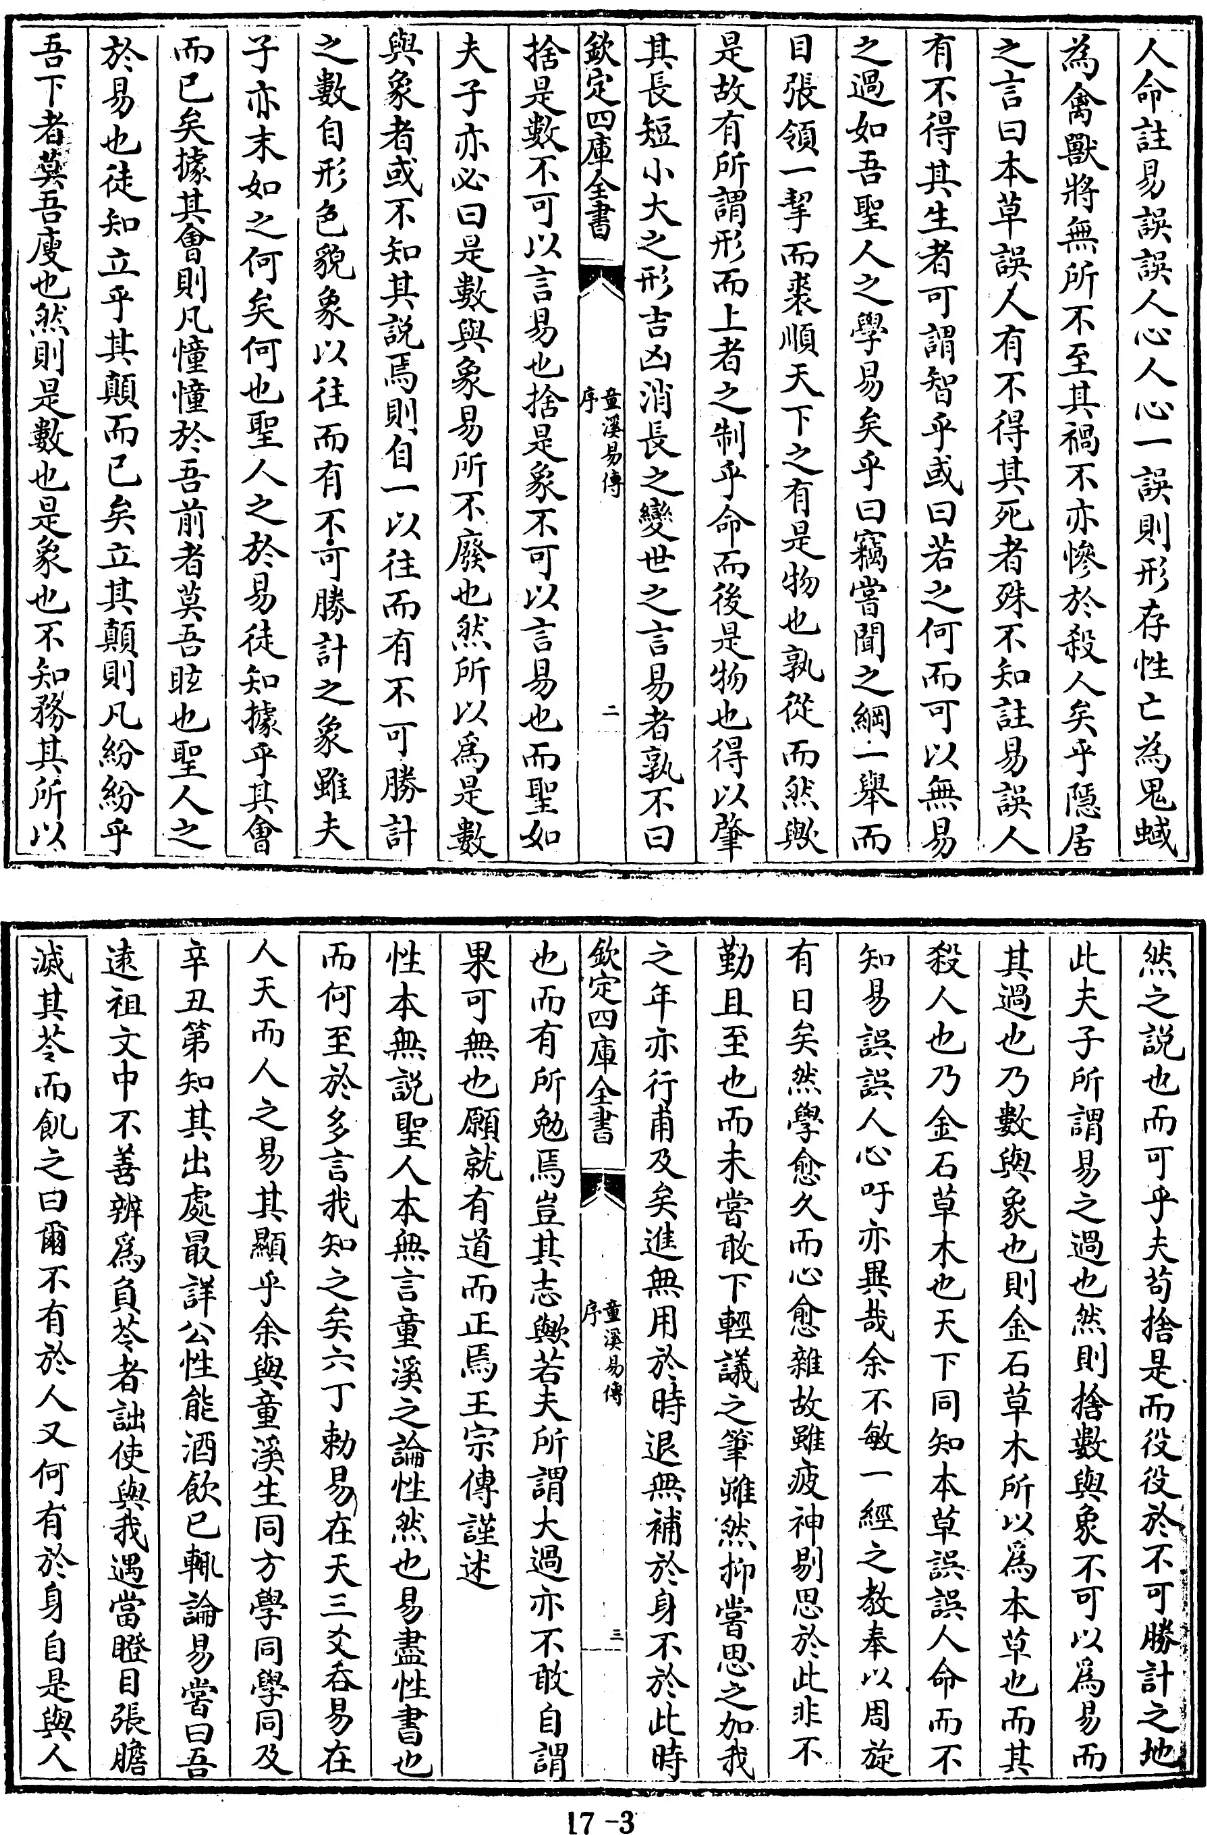 人命註易誤誤人心人心一誤則形存性亡為鬼蜮
為禽獸將無所不至其禍不亦慘於殺人矣乎隱居
之言曰本草誤人有不得其死者殊不知註易誤人
有不得其生者可謂智乎或曰若之何而可以無易
之過如吾聖人之學易矣乎曰竊嘗聞之綱一舉而
目張領一挈而裘順天下之有是物也孰從而然歟
是故有所謂形而上者之制乎命而後是物也得以肇
其長短小大之形吉凶消長之變世之言易者孰不曰
欽定四庫全書
童溪易傳
序
二
捨是數不可以言易也捨是象不可以言易也而聖如
夫子亦必曰是數與象易所不廢也然所以為是數
與象者或不知其說焉則自一以往而有不可勝計
之數自形色貌象以往而有不可勝計之象雖夫
子亦末如之何矣何也聖人之於易徒知據乎其會
而已矣據其會則凡憧憧於吾前者莫吾眩也聖人之
於易也徒知立乎其顛而已矣立其顛則凡紛紛乎
吾下者莫吾廋也然則是數也是象也不知務其所以
然之說也而可乎夫苟捨是而役役於不可勝計之地
此夫子所謂易之過也然則捨數與象不可以為易而
其過也乃數與象也則金石草木所以為本草也而其
殺人也乃金石草木也天下同知本草誤誤人命而不
知易誤誤人心吁亦異哉余不敏一經之教奉以周旋
有日矣然學愈久而心愈雜故雖疲神剔思於此非不
勤且至也而未嘗敢下輕議之筆雖然抑嘗思之加我
之年亦行甫及矣進無用於時退無補於身不於此時
欽定四庫全書
童溪易傳
序
三
也而有所勉焉豈其志歟若夫所謂大過亦不敢自謂
果可無也願就有道而正焉王宗傳謹述
性本無說聖人本無言童溪之論性然也易盡性書也
而何至於多言我知之矣六丁勑易在天三爻吞易在
人天而人之易其顯乎余與童溪生同方學同學同及
辛丑第知其出處最詳公性能酒飲已輒論易嘗曰吾
遠祖文中不善辨為負苓者詘使與我遇當瞪目張膽
滅其苓而飢之曰爾不有於人又何有於身自是與人
17-3